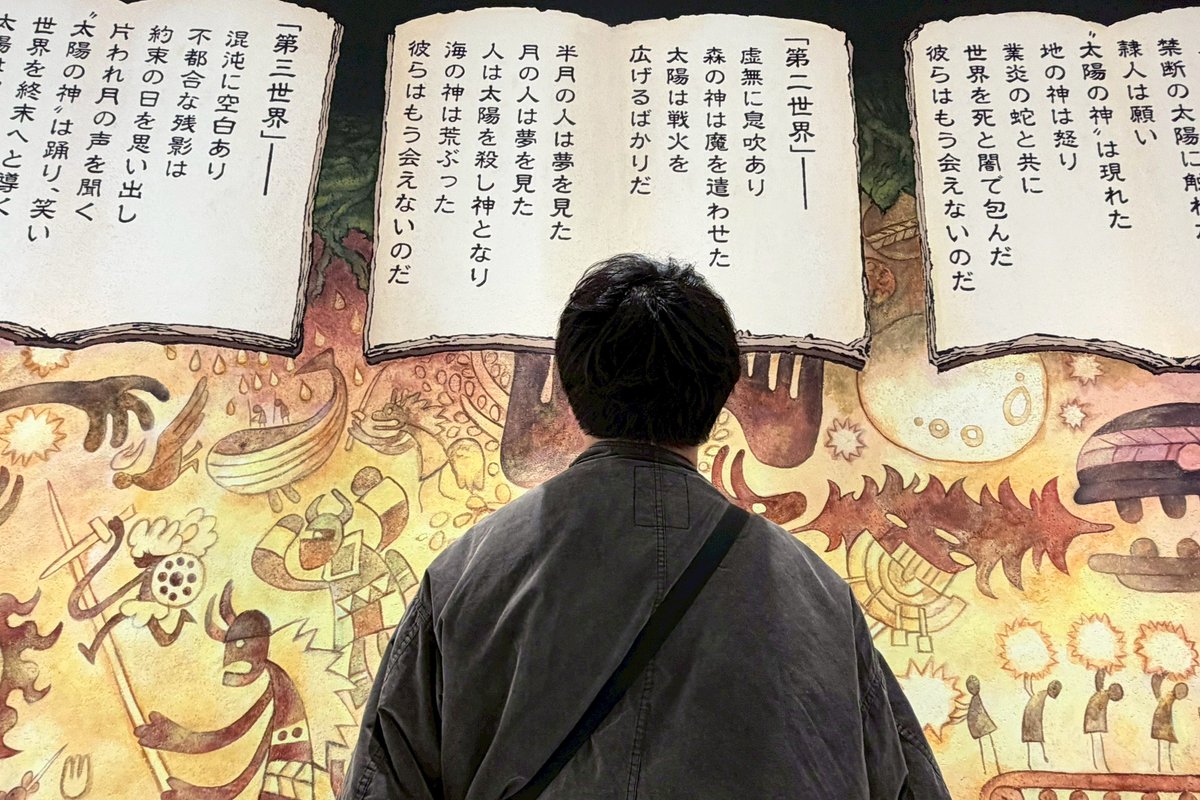 禁断の太陽に触れ
隷人は願い
〝太陽の神〟は現れた
地の神は怒り
業炎の蛇と共に
世界を死と闇で包んだ
彼らはもう会えないのだ
「第二世界」――
虚無に息吹あり
森の神は魔を遣わせた
太陽は戦火を
広げるばかりだ
半月の人は夢を見た
月の人は夢を見た
人は太陽を殺し神となり
海の神は荒ぶった
彼らはもう会えないのだ
「第三世界」――
混沌に空白あり
不都合な残影は
約束の日を思い出し
片われ月の声を聞く
〝太陽の神〟は踊り、笑い
世界を終末へと導く
太陽は